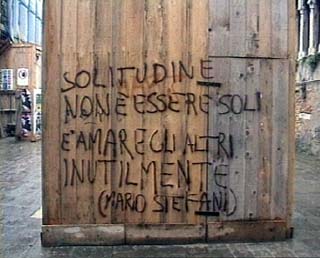 SOLITUDINE
NON È ESSERE SOLI
E' AMARE GLI ALTRI
INUTILMENTE
(MARIO STEFANI)